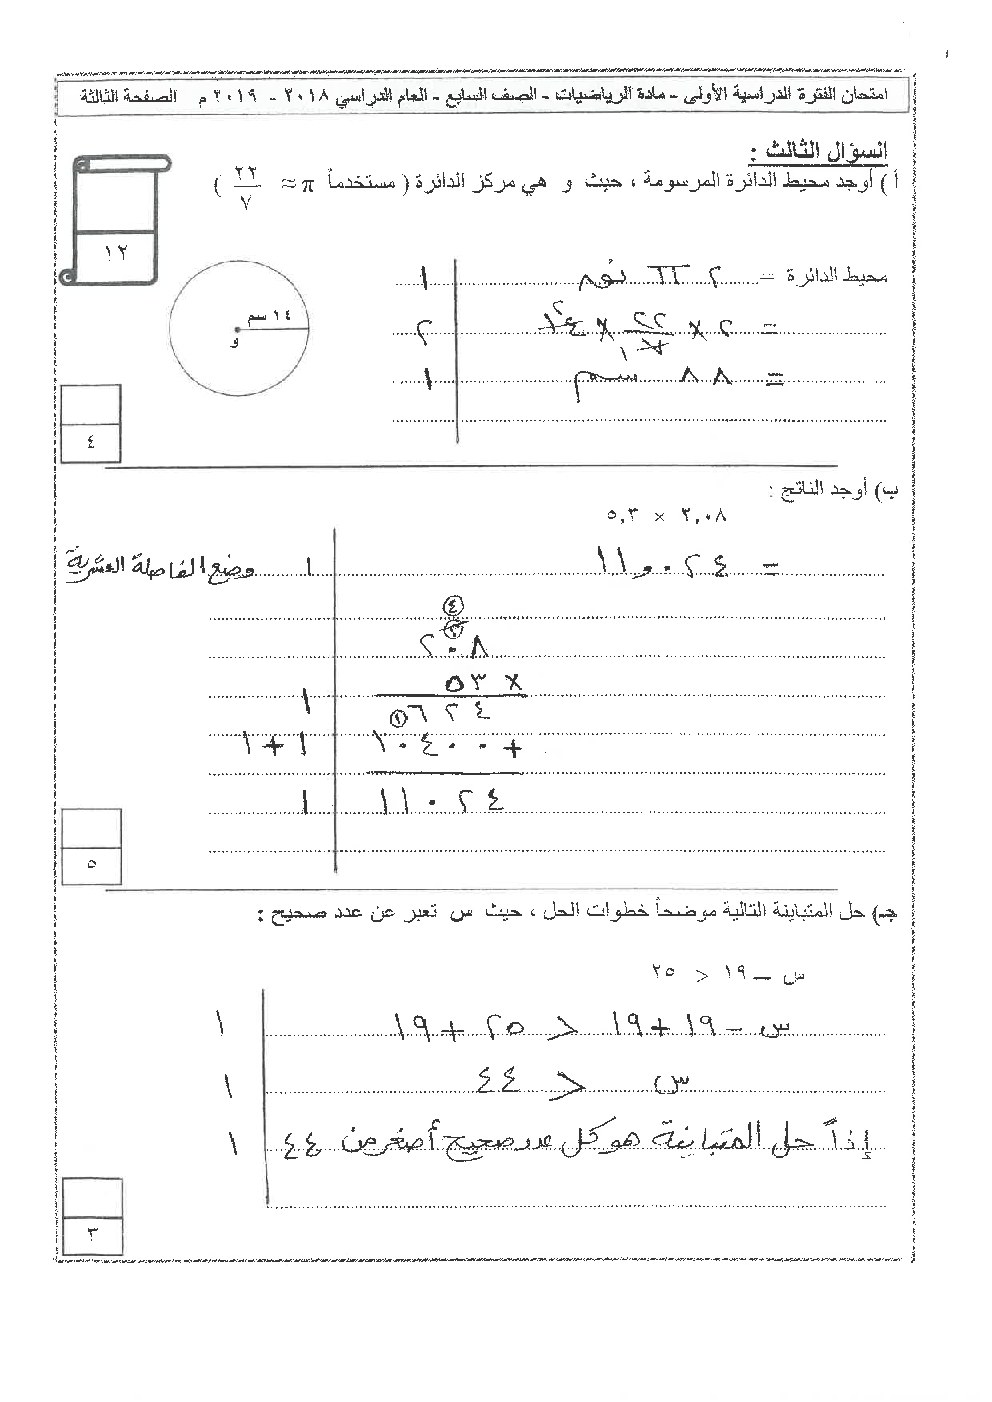 امتحان الفترة الدراسية الأولى - مادة الرياضيات - الصف السابع - العام الدراسي ٢٠١٨ - ٢٠١٩ م الصفحة الثالثة
السؤال الثالث :
١٢
أ ) أوجد محيط الدائرة المرسومة ، حيث و هي مركز الدائرة ( مستخدماً π ≈ ٢٢/٧ )
محيط الدائرة = ٢ π نوم ١
١٤ سم
و
= ٢ × ٢٢/٧ × ١٤ ٢
١ ٢
= ٨٨ سم ١
٤
ب) أوجد الناتج :
٢,٠٨ × ٥,٣
= ١١,٠٢٤ ١ وضع الفاصلة العشرية
٤
٢
٢٠٨
× ٥٣
٦٢٤ ١
١
+ ١٠٤٠٠ ١+١
١١٠٢٤ ١
٥
جـ) حل المتباينة التالية موضحاً خطوات الحل ، حيث س تعبر عن عدد صحيح :
س – ١٩ > ٢٥
س - ١٩ + ١٩ > ٢٥ + ١٩ ١
س > ٤٤ ١
إذاً حل المتباينة هو كل عدد صحيح أصغر من ٤٤ ١
٣